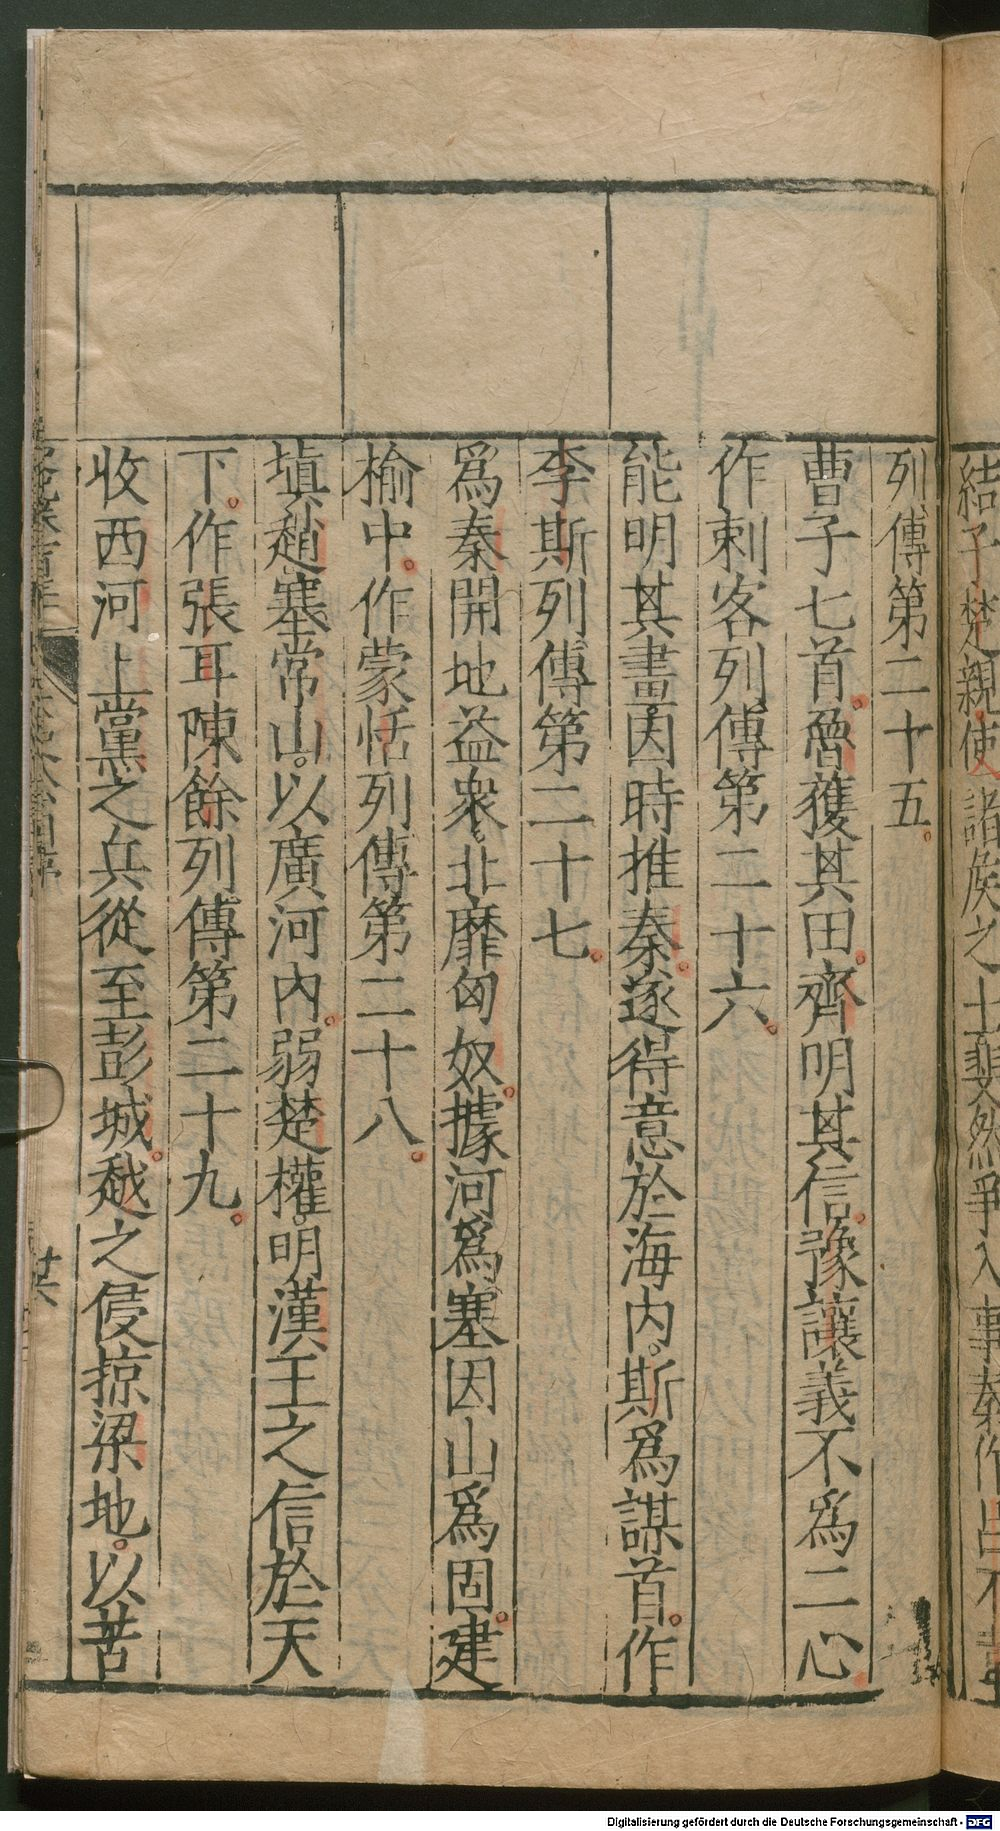 結子楚親使諸侯之士斐然爭入事秦作呂不韋
列傳第二十五
曹子七首魯獲其田齊明其信豫讓義不為二心
作刺客列傳第二十六
能明其畫因時推秦遂得意於海內斯為謀首作
李斯列傳第二十七
為秦開地益衆北靡匈奴據河為塞因山為固建
榆中作蒙恬列傳第二十八
填趙塞常山以廣河內弱楚權明漢王之信於天
下作張耳陳餘列傳第二十九
收西河上黨之兵從至彭城越之侵掠梁地以苦
Digitalisierung gefördert durch die Deutsche Forschungsgemeinschaft - DFG